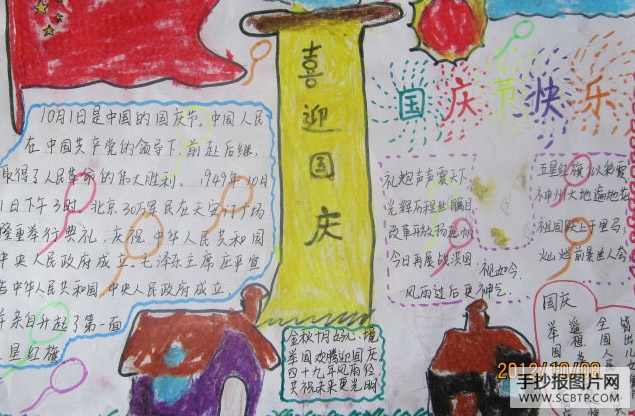 喜迎国庆
国庆节快乐
10月1日是中国的国庆节.中国人民
在中国共产党的领导下,前赴后继,
取得了人民革命的伟大胜利. 1949年10月
1日下午3时,北京30万军民在天安门广场
隆重举行典礼,庆祝中华人民共和国
中央人民政府成立.毛泽东主席庄严宣
告中华人民共和国,中央人民政府成立
并亲自升起了第一面
星红旗
礼炮声声震天下
光辉历程世瞩目
改革开放扬
今日再展
祖如今
风雨过后更神气.
五星红旗
神州大地遍地花
祖国
灿烂前景世人夸
金秋十月好心境
举国欢腾迎国庆
四十九年风雨经
共祝未来更光明
国庆
举国
遥祖
全国人
2012/10/08
手抄报图片网
WWW.SCBTP.COM